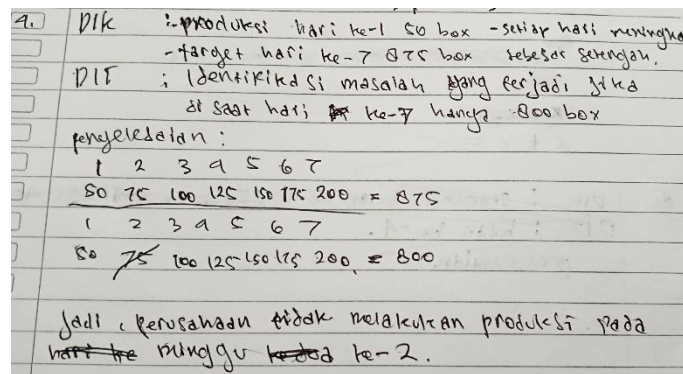 4. Dik : - produksi hari ke-1 50 box - setiap hari meningka
- target hari ke-7 875 box sebesar setengah.
DIT : Identifikasi masalah yang terjadi jika
di saat hari ke-7 hanya 800 box
penyelesaian :
1 2 3 4 5 6 7
50 75 100 125 150 175 200 = 875
1 2 3 4 5 6 7
50 75 100 125 150 175 200 = 800
Jadi, perusahaan tidak melakukan produksi pada
hari ke minggu ke-2.